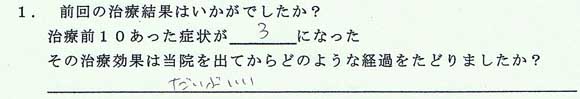 1. 前回の治療結果はいかがでしたか?
治療前10あった症状が 3 になった
その治療効果は当院を出てからどのような経過をたどりましたか?
だいぶいい